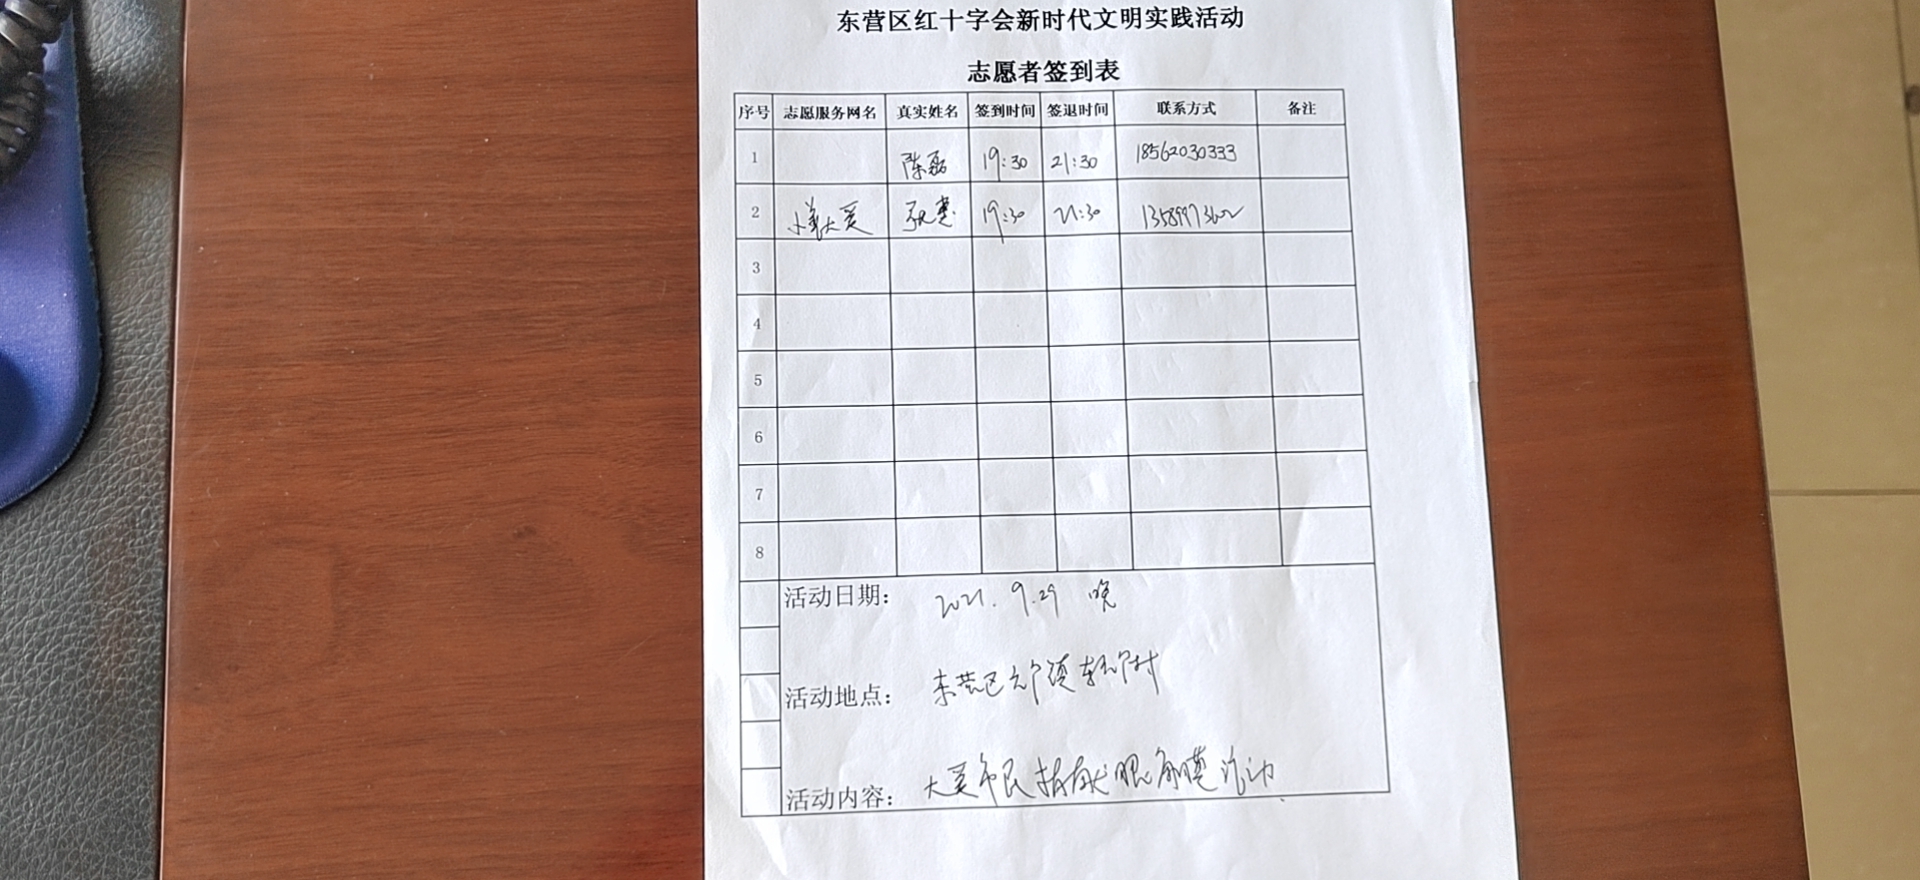 东营区红十字会新时代文明实践活动
志愿者签到表
序号 志愿服务网名 真实姓名 签到时间 签退时间 联系方式 备注
1 陈磊 19:30 21:30 18562030333
2 小美大爱 19:30 21:30
3
4
5
6
7
8
活动日期: 2021. 9.29 晚
活动地点: 东营区六户镇 村
活动内容: 大爱市民捐献眼角膜活动